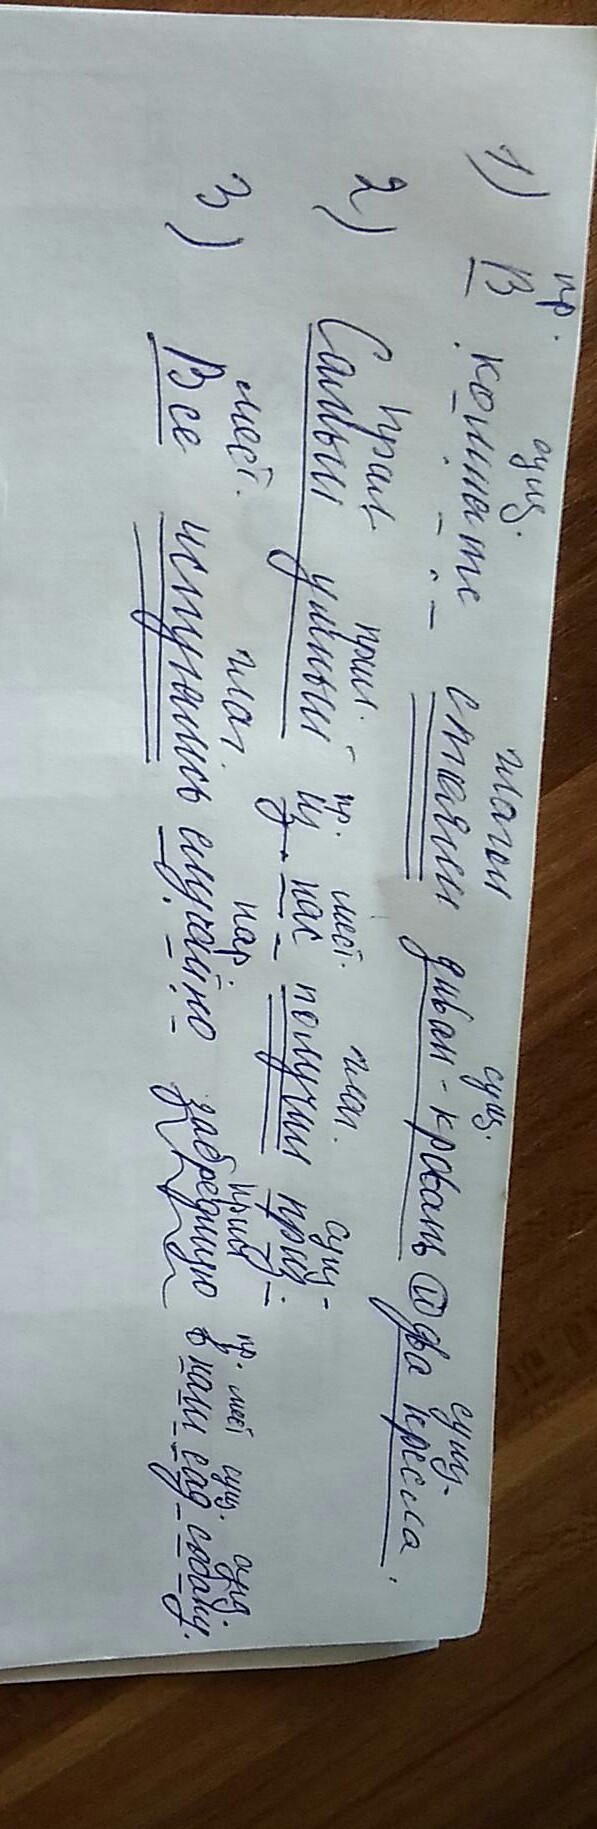 пр. сущ. глагол сущ. сущ.
1) В комнате стояли диван-кровать и два кресла.
прил прил. пр. мест. глаг. сущ.
2) Самый умный из нас получил приз.
мест. глаг. нар прич пр. мест сущ. сущ.
3) Все испугались случайно забредшую в наш сад собаку.